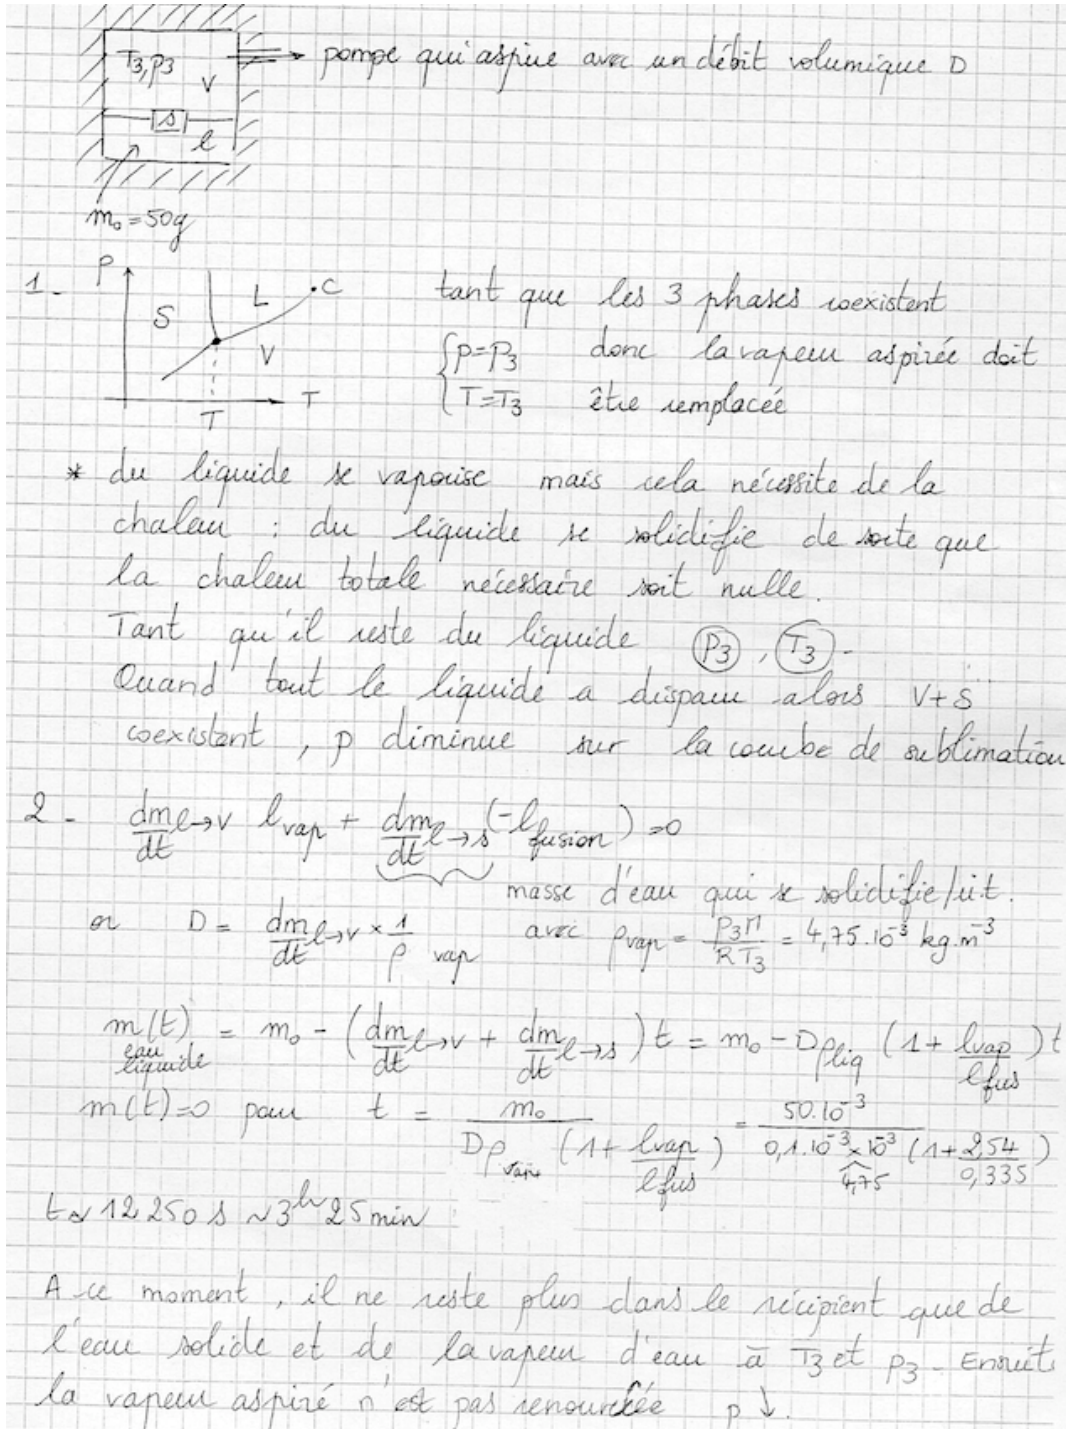 T₃,p₃
V
pompe qui aspire avec un débit volumique D
s
l
m₀ = 50g
1 -
P
S
L
C
V
T
T
tant que les 3 phases coexistent
{p=p₃ donc la vapeur aspirée doit
{T=T₃ être remplacée
* du liquide se vaporise mais cela nécessite de la
chaleur : du liquide se solidifie de sorte que
la chaleur totale nécessaire soit nulle.
Tant qu'il reste du liquide P₃ , T₃ -
Quand tout le liquide a disparu alors V+S
coexistent , p diminue sur la courbe de sublimation
2 - dm/dt l→v l vap + dm/dt l→s (-l fusion) = 0
masse d'eau qui se solidifie/u.t.
or D = dm/dt l→v × 1/ρ vap avec ρvap = p₃M/RT₃ = 4,75.10⁻³ kg.m⁻³
m(t) eau liquide = m₀ - (dm/dt l→v + dm/dt l→s) t = m₀ - Dρliq (1 + lvap/lfus) t
m(t)=0 pour t = m₀/(Dρvap (1 + lvap/lfus)) = 50.10⁻³/(0,1.10⁻³ × 10⁻³ 4,75 (1 + 2,54/0,335))
t ≈ 12 250 s ~ 3h 25 min
A ce moment , il ne reste plus dans le récipient que de
l'eau solide et de la vapeur d'eau à T₃ et p₃ - Ensuite
la vapeur aspiré n'est pas renouvelée p ↓.